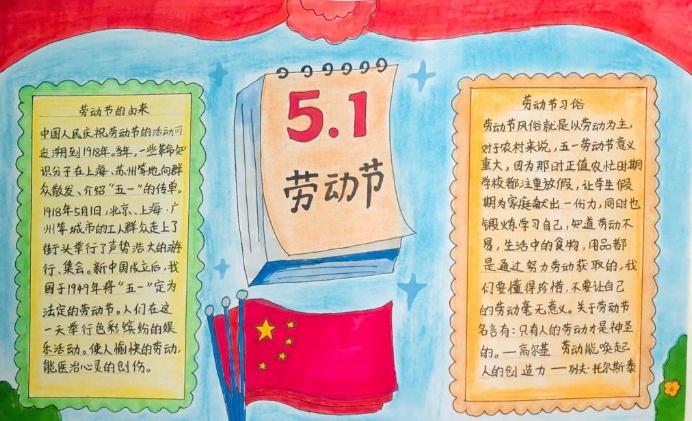 劳动节的由来
中国人民庆祝劳动节的活动可
追溯到1918年。当年,一些革命知
识分子在上海、苏州等地向群
众散发、介绍“五一”的传单。
1918年5月1日,北京、上海、广
州等城市的工人群众走上了
街头举行了声势浩大的游
行、集会。新中国成立后,我
国于1949年将“五一”定为
法定的劳动节。人们在这
一天举行色彩缤纷的娱
乐活动。使人愉快的劳动,
能医治心灵的创伤。
5.1
劳动节
劳动节习俗
劳动节风俗就是以劳动为主,
对于农村来说,五一劳动节意义
重大,因为那时正值农忙时期
学校都注重放假,让学生假
期为家庭献出一份力,同时也
锻炼学习自己,知道劳动不
易,生活中的食物,用品都
是通过努力劳动获取的,我
们要懂得珍惜,不要让自己
的劳动毫无意义。关于劳动节
名言有:只有人的劳动才是神圣
的。—高尔基 劳动能唤起
人的创造力—列夫·托尔斯泰